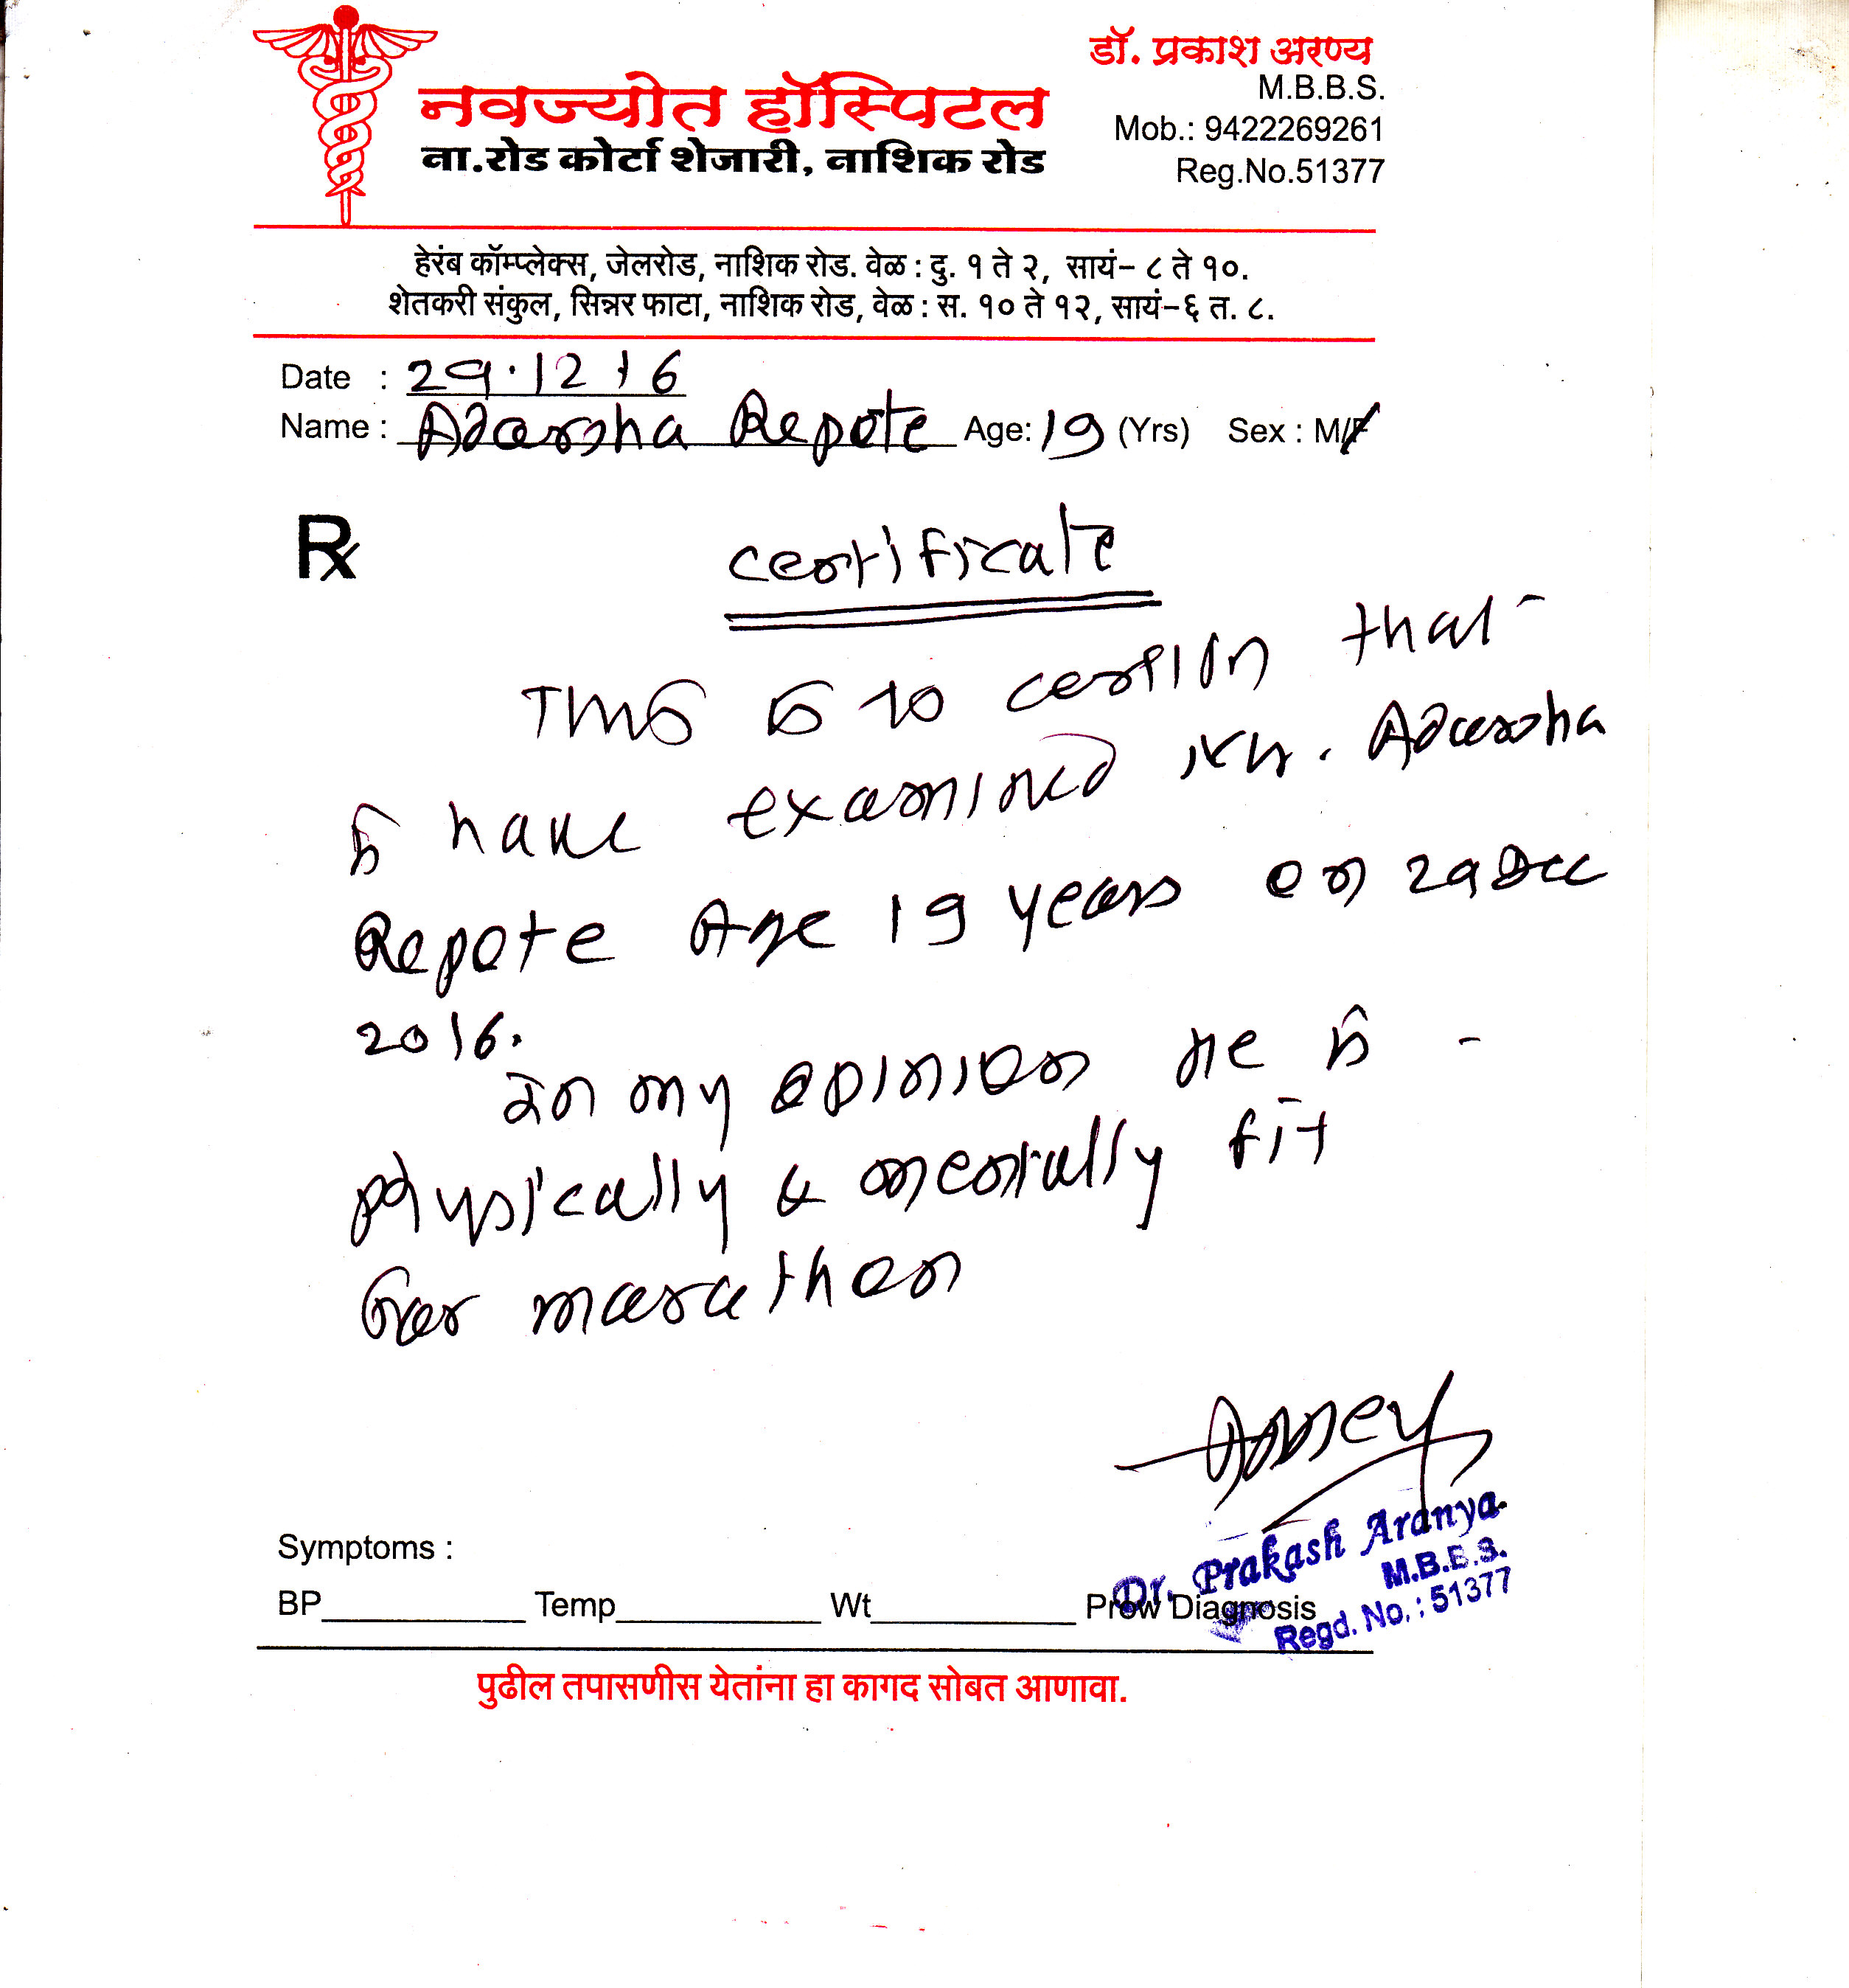 डॉ. प्रकाश अरण्य
M.B.B.S.
नवज्योत हॉस्पिटल
Mob.: 9422269261
ना.रोड कोर्टा शेजारी, नाशिक रोड
Reg.No.51377
हेरंब कॉम्प्लेक्स, जेलरोड, नाशिक रोड. वेळ : दु. १ ते २, सायं- ८ ते १०.
शेतकरी संकुल, सिन्नर फाटा, नाशिक रोड, वेळ : स. १० ते १२, सायं-६ त. ८.
Date : 29.12.16
Name : Adarsha Repote Age: 19 (Yrs) Sex : M/F
Rx
certificate
This is to certify that
I have examined Mr. Adarsha
Repote Age 19 years on 29 Dec
2016.
In my opinion he is -
physically & mentally fit
for marathon
Dr. Prakash Aranya
M.B.B.S.
Regd. No. : 51377
Symptoms :
BP Temp Wt Prow Diagnosis
पुढील तपासणीस येतांना हा कागद सोबत आणावा.